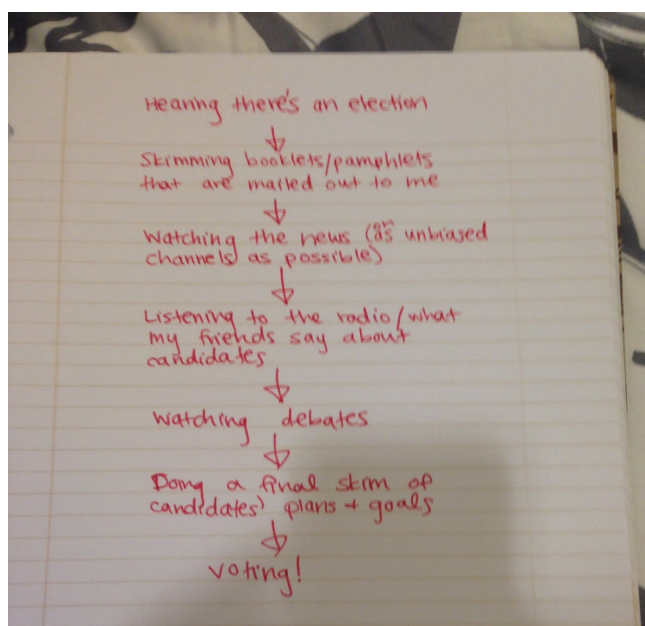 Hearing there's an election
Skimming booklets/pamphlets
that are mailed out to me
Watching the news (on as unbiased
channels as possible)
Listening to the radio/what
my friends say about
candidates
Watching debates
Doing a final skim of
candidates' plans + goals
voting!